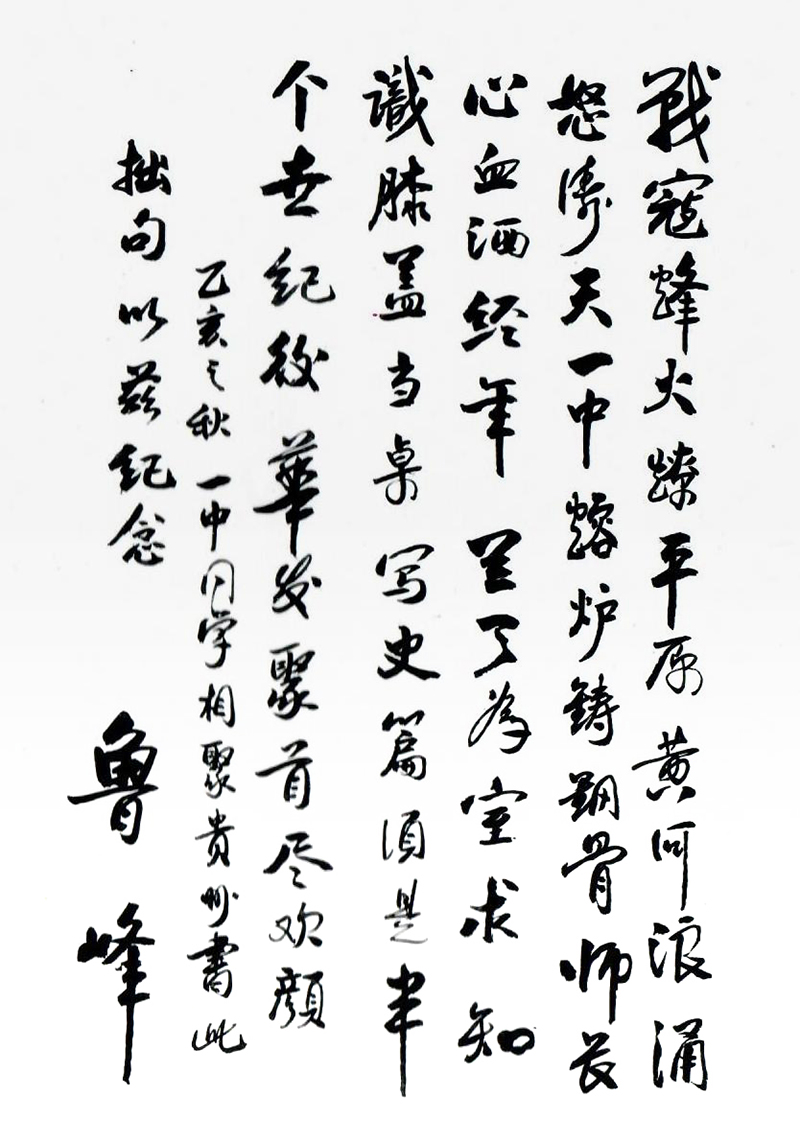 戰寇烽火燎平原黄河浪涌
怒涛天一中熔炉鑄鋼骨师长
心血洒经年为室求知
識膝盖当桌写史篇须是半
个世纪後華发聚首尽欢颜
乙亥之秋一中同学相聚贵州書此
拙句以兹纪念
魯峰